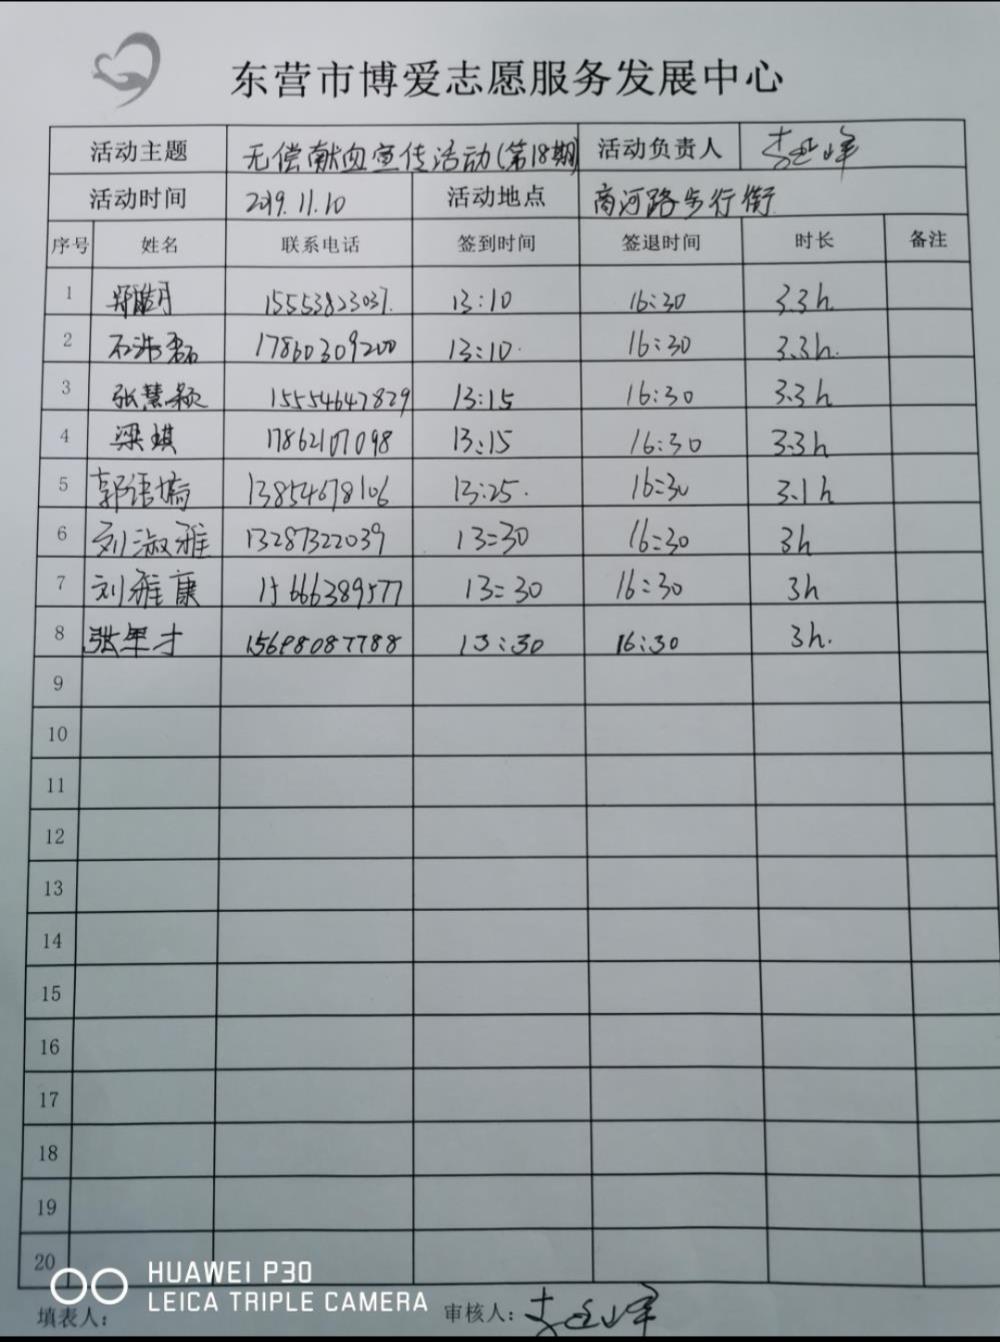 东营市博爱志愿服务发展中心
活动主题 无偿献血宣传活动(第18期) 活动负责人
活动时间 2019.11.10 活动地点 商河路步行街
序号 姓名 联系电话 签到时间 签退时间 时长 备注
1 15553823037. 13:10 16:30 3.3h
2 石浩磊 17860309200 13:10 16:30 3.3h.
3 张慧颖 15554647829 13:15 16:30 3.3h
4 梁琪 17862107098 13:15 16:30 3.3h
5 郭语嫣 13854678106 13:25. 16:30 3.1h
6 刘淑雅 13287322039 13:30 16:30 3h
7 刘雅康 15666389577 13:30 16:30 3h
8 张军才 15698087788 13:30 16:30 3h.
9
10
11
12
13
14
15
16
17
18
19
20
HUAWEI P30
LEICA TRIPLE CAMERA
填表人: 审核人: